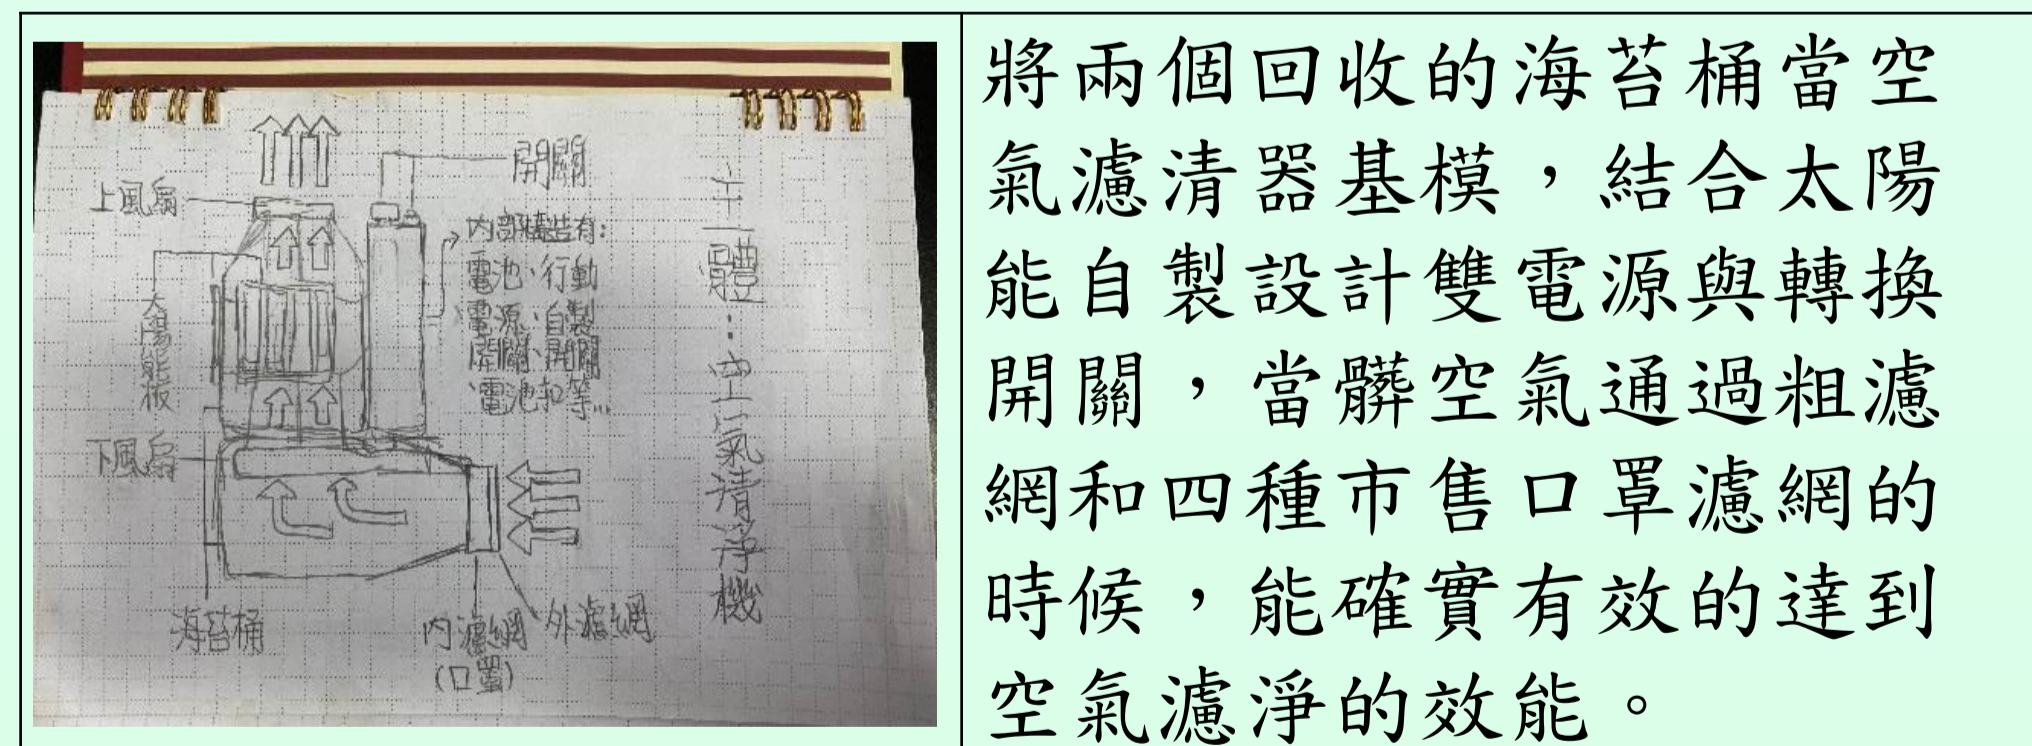 開關
上風扇
內部構造有：
電池、行動
電源、自製
開關、開關
、電池扣等...
太陽能板
下風扇
海苔桶
內濾網
(口罩)
外濾網
主體：空氣清淨機
將兩個回收的海苔桶當空
氣濾清器基模，結合太陽
能自製設計雙電源與轉換
開關，當髒空氣通過粗濾
網和四種市售口罩濾網的
時候，能確實有效的達到
空氣濾淨的效能。